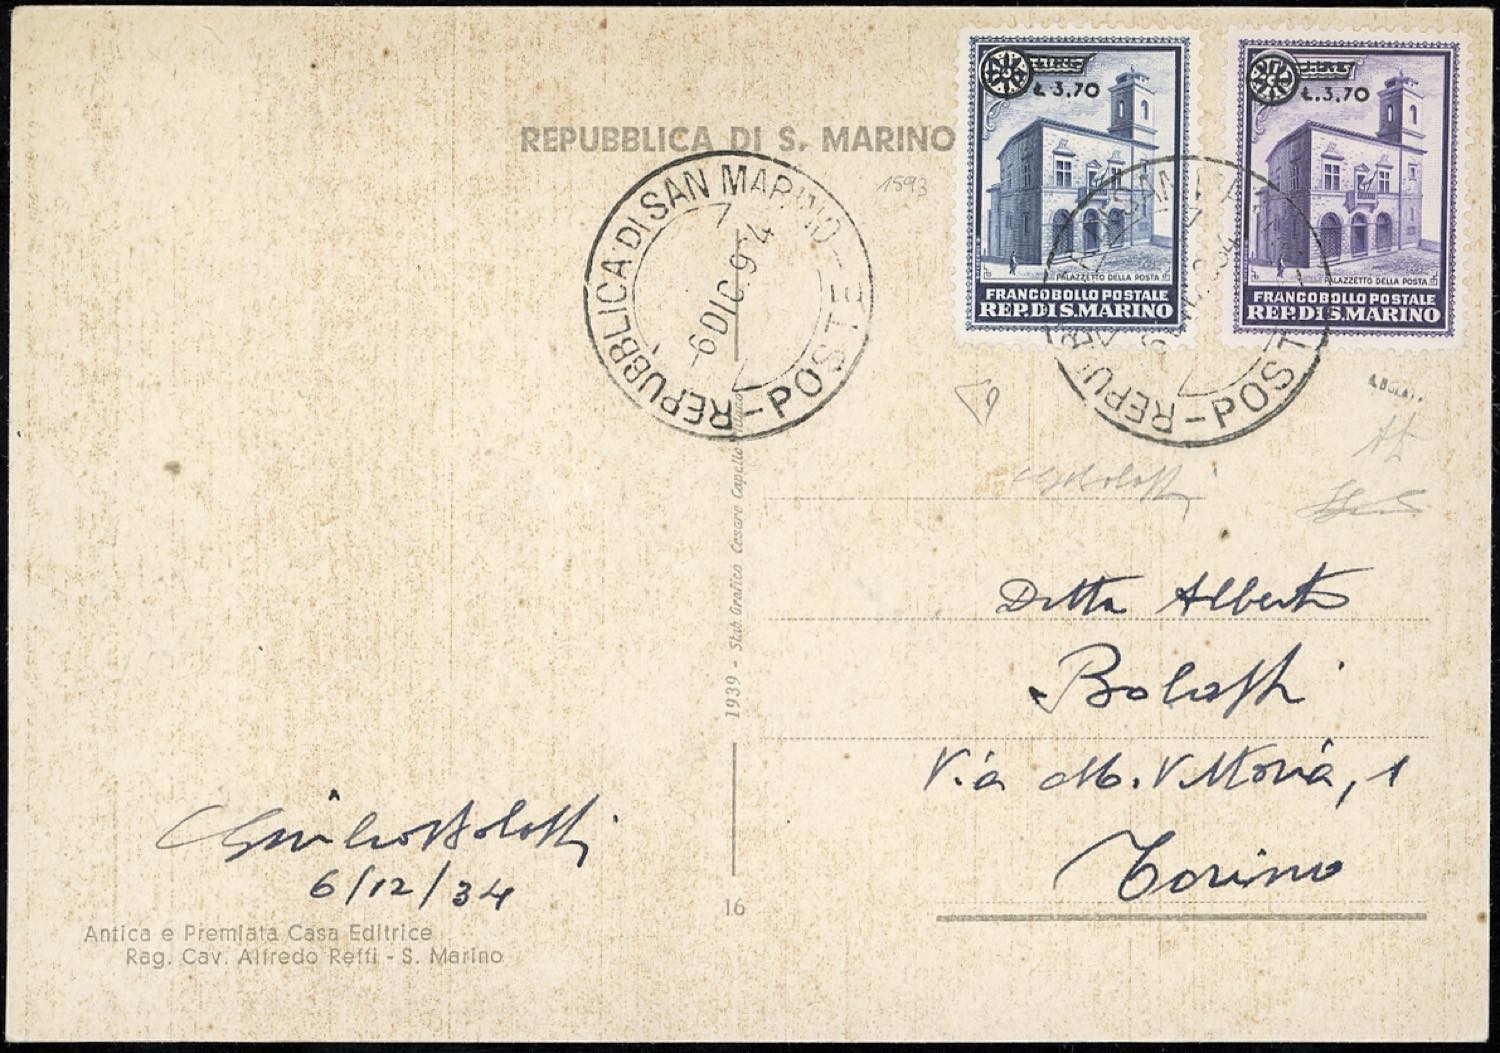 REPUBBLICA DI S. MARINO
1593
Ł 3,70
PALAZZETTO DELLA POSTA
FRANCOBOLLO POSTALE
REP. DI S. MARINO
Ł. 3,70
PALAZZETTO DELLA POSTA
FRANCOBOLLO POSTALE
REP. DI S. MARINO
REPUBBLICA DI SAN MARINO - POSTE -
6 DIC. 934
REPUBBLICA DI SAN MARINO - POSTE
Ditta Alberto
Bolaffi
Via M. Vittoria, 1
Torino
Giulio Bolaffi
6/12/34
1939 - Stab. Grafico Cesare Capello
16
Antica e Premiata Casa Editrice
Rag. Cav. Alfredo Reffi - S. Marino